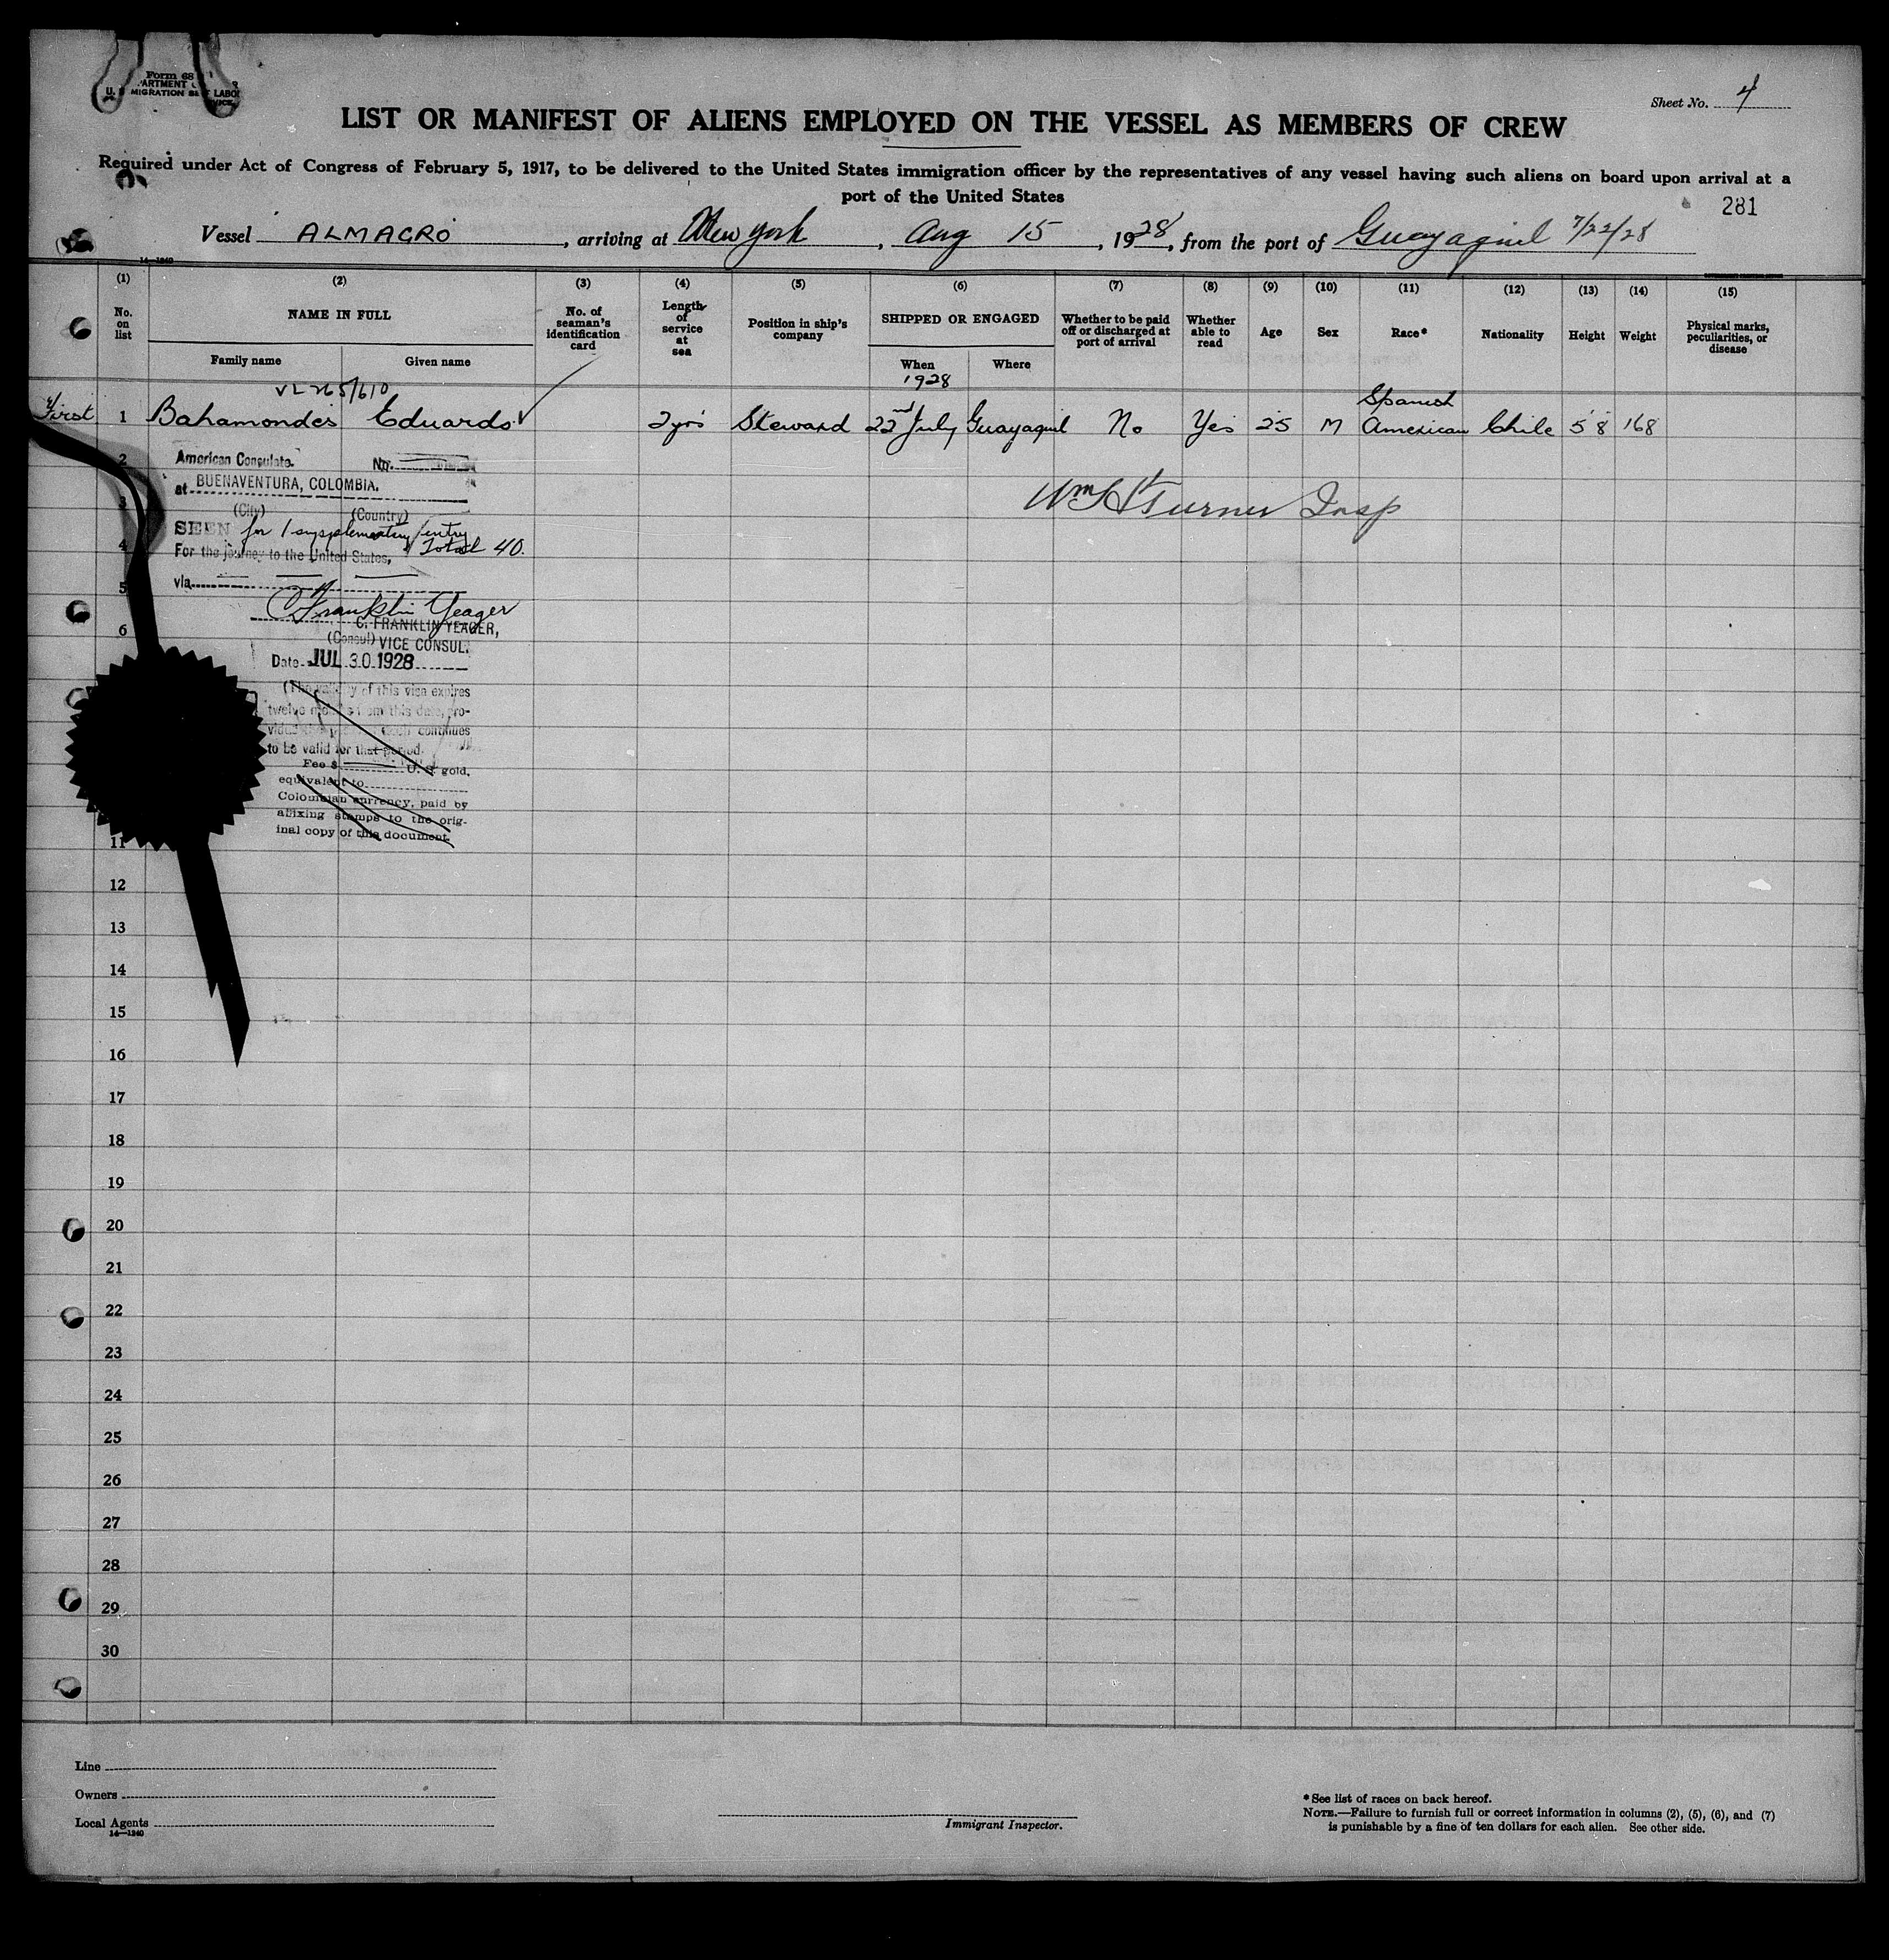 Form 68
U. S. DEPARTMENT OF LABOR
IMMIGRATION SERVICE
Sheet No. 4
LIST OR MANIFEST OF ALIENS EMPLOYED ON THE VESSEL AS MEMBERS OF CREW
Required under Act of Congress of February 5, 1917, to be delivered to the United States immigration officer by the representatives of any vessel having such aliens on board upon arrival at a
port of the United States
281
Vessel ALMAGRO, arriving at New York, Aug 15, 1928, from the port of Guayaquil 7/22/28
14—1240
(1) (2) (3) (4) (5) (6) (7) (8) (9) (10) (11) (12) (13) (14) (15)
No. on list NAME IN FULL No. of seaman's identification card Length of service at sea Position in ship's company SHIPPED OR ENGAGED Whether to be paid off or discharged at port of arrival Whether able to read Age Sex Race* Nationality Height Weight Physical marks, peculiarities, or disease
Family name Given name When Where
1928
VL 265/610
First 1 Bahamondes Eduardo 2 yrs Steward 22nd July Guayaquil No Yes 25 M Spanish American Chile 5'8 168
2
American Consulate. No.
at BUENAVENTURA, COLOMBIA.
3
(City) (Country)
Wm Turner Insp
SEEN for 1 supplementary entry
Total 40.
4
For the journey to the United States,
via
5
C Franklin Yeager
C. FRANKLIN YEAGER,
6
(Consul) VICE CONSUL.
Date JUL 30 1928
(The validity of this visa expires
twelve months from this date, pro-
continues
to be valid for that period.
Fee $ U. S. gold,
equivalent to
Colombian currency, paid by
affixing stamps to the orig-
inal copy of this document.
11
12
13
14
15
16
17
18
19
20
21
22
23
24
25
26
27
28
29
30
Line
Owners
Local Agents
14—1240
Immigrant Inspector.
*See list of races on back hereof.
NOTE.—Failure to furnish full or correct information in columns (2), (5), (6), and (7)
is punishable by a fine of ten dollars for each alien. See other side.